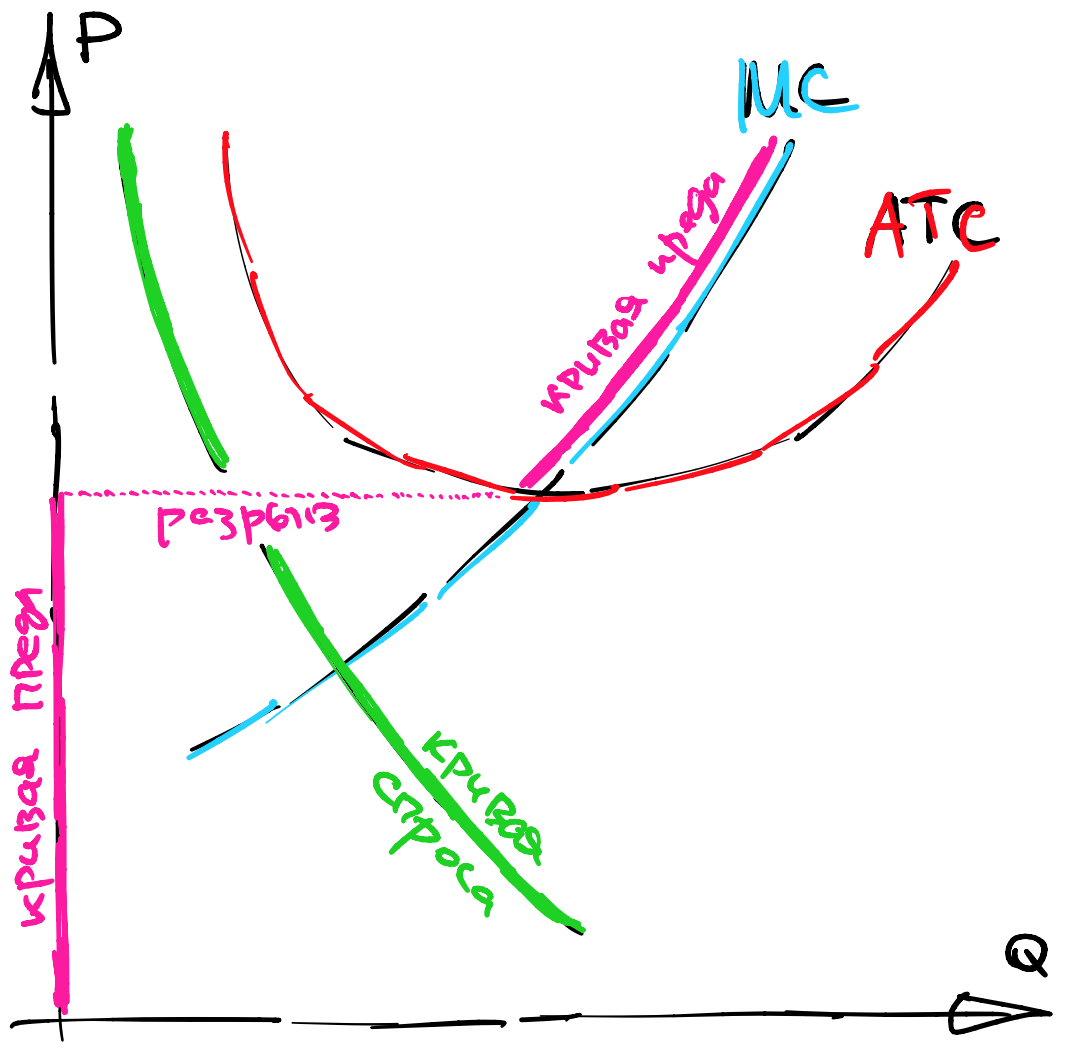 P
MC
ATC
кривая
разрыв
кривая пред
кривая
спроса
Q